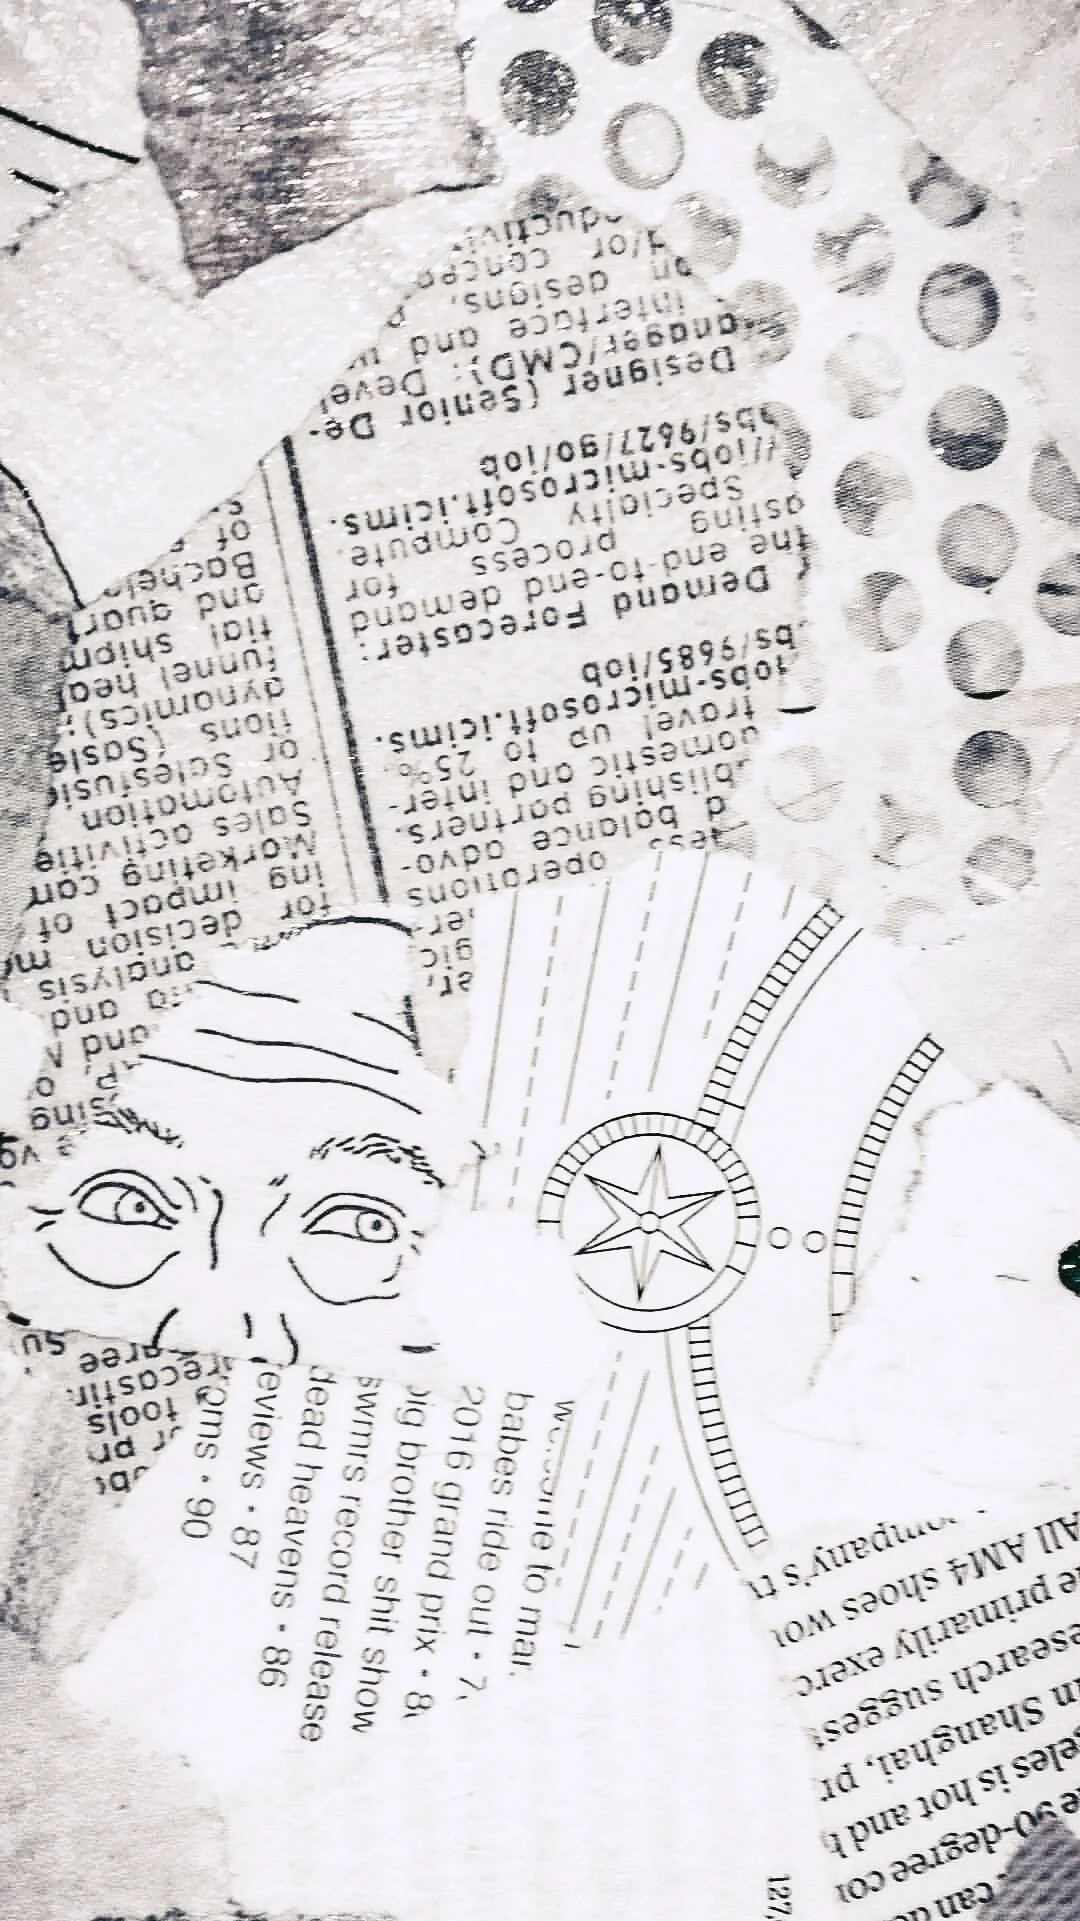 operations
advo-
d balance
blishing partners.
domestic and inter-
travel up to 25%.
jobs-microsoft.icims.
bs/9685/job
Demand Forecaster:
the end-to-end demand
asting process for
Specialty Compute.
//jobs-microsoft.icims.
bs/9627/go/job
Designer (Senior De-
anager/CMD): Devel
interface and u
on designs,
d/or concep
ductivi
tools
recastin
gree
sing
and
and
analysis
for decision m
ing impact of
Marketing cam
Sales activitie
Automation
or Salesfusio
tions (Sasle
dynamics);
funnel hea
tial shipm
and quar
Bachel
of
to mar
babes ride out • 7
2016 grand prix • 8
big brother shit show
swmrs record release
dead heavens • 86
eviews • 87
oms • 90
can
90-degree co
eles is hot and h
in Shanghai, pr
esearch sugges
e primarily exerc
All AM4 shoes wou
ompany's
127